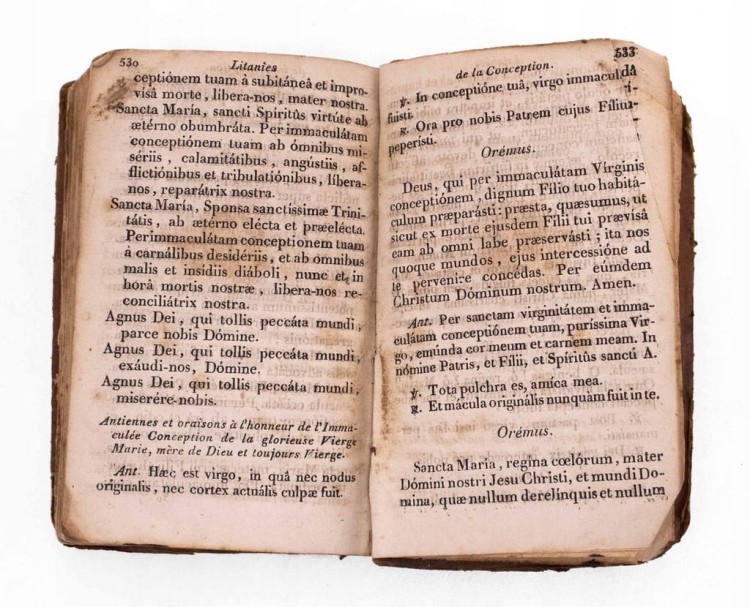 530
Litanies
ceptiónem tuam à subitáneâ et impro-
visâ morte, libera-nos, mater nostra.
Sancta María, sancti Spiritûs virtúte ab
ætérno obumbráta. Per immaculátam
conceptiónem tuam ab ómnibus mi-
sériis, calamitátibus, angústiis, af-
flictiónibus et tribulatiónibus, líbera-
nos, reparátrix nostra.
Sancta María, Sponsa sanctissimæ Trini-
tátis, ab ætérno elécta et præelécta.
Perimmaculátam conceptionem tuam
â carnálibus desidériis, et ab omnibus
malis et insidiis diáboli, nunc et in
horâ mortis nostræ, libera-nos re-
conciliátrix nostra.
Agnus Dei, qui tollis peccáta mundi,
parce nobis Dómine.
Agnus Dei, qui tollis peccáta mundi,
exáudi-nos, Dómine.
Agnus Dei, qui tollis peccáta mundi,
miserére-nobis.
Antiennes et oraisons à l'honneur de l'Imma-
culée Conception de la glorieuse Vierge
Marie, mère de Dieu et toujours Vierge.
Ant. Hæc est virgo, in quâ nec nodus
originalis, nec cortex actuális culpæ fuit.
de la Conception.
533
℣. In conceptióne tuâ, virgo immaculda
fuisti.
℟. Ora pro nobis Patrem cujus Fíliu
peperísti.
Orémus.
Deus, qui per immaculátam Vírginis
conceptiónem, dignum Fílio tuo habitá-
culum præparásti: præsta, quæsumus, ut
sicut ex morte ejusdem Fílii tui prævísâ
eam ab omni labe præservásti; ita nos
quoque mundos, ejus intercessióne ad
te pervenire concédas. Per eúmdem
Christum Dóminum nostrum. Amen.
Ant. Per sanctam virginitátem et imma-
culátam conceptiónem tuam, puríssima Vir-
go, emúnda cor meum et carnem meam. In
nómine Patris, et Fílii, et Spíritûs sancti A.
℣. Tota pulchra es, amica mea.
℟. Et mácula originális nunquàm fuit in te.
Orémus.
Sancta María, regina cœlórum, mater
Dómini nostri Jesu Christi, et mundi Do-
mina, quæ nullum derelinquis et nullum